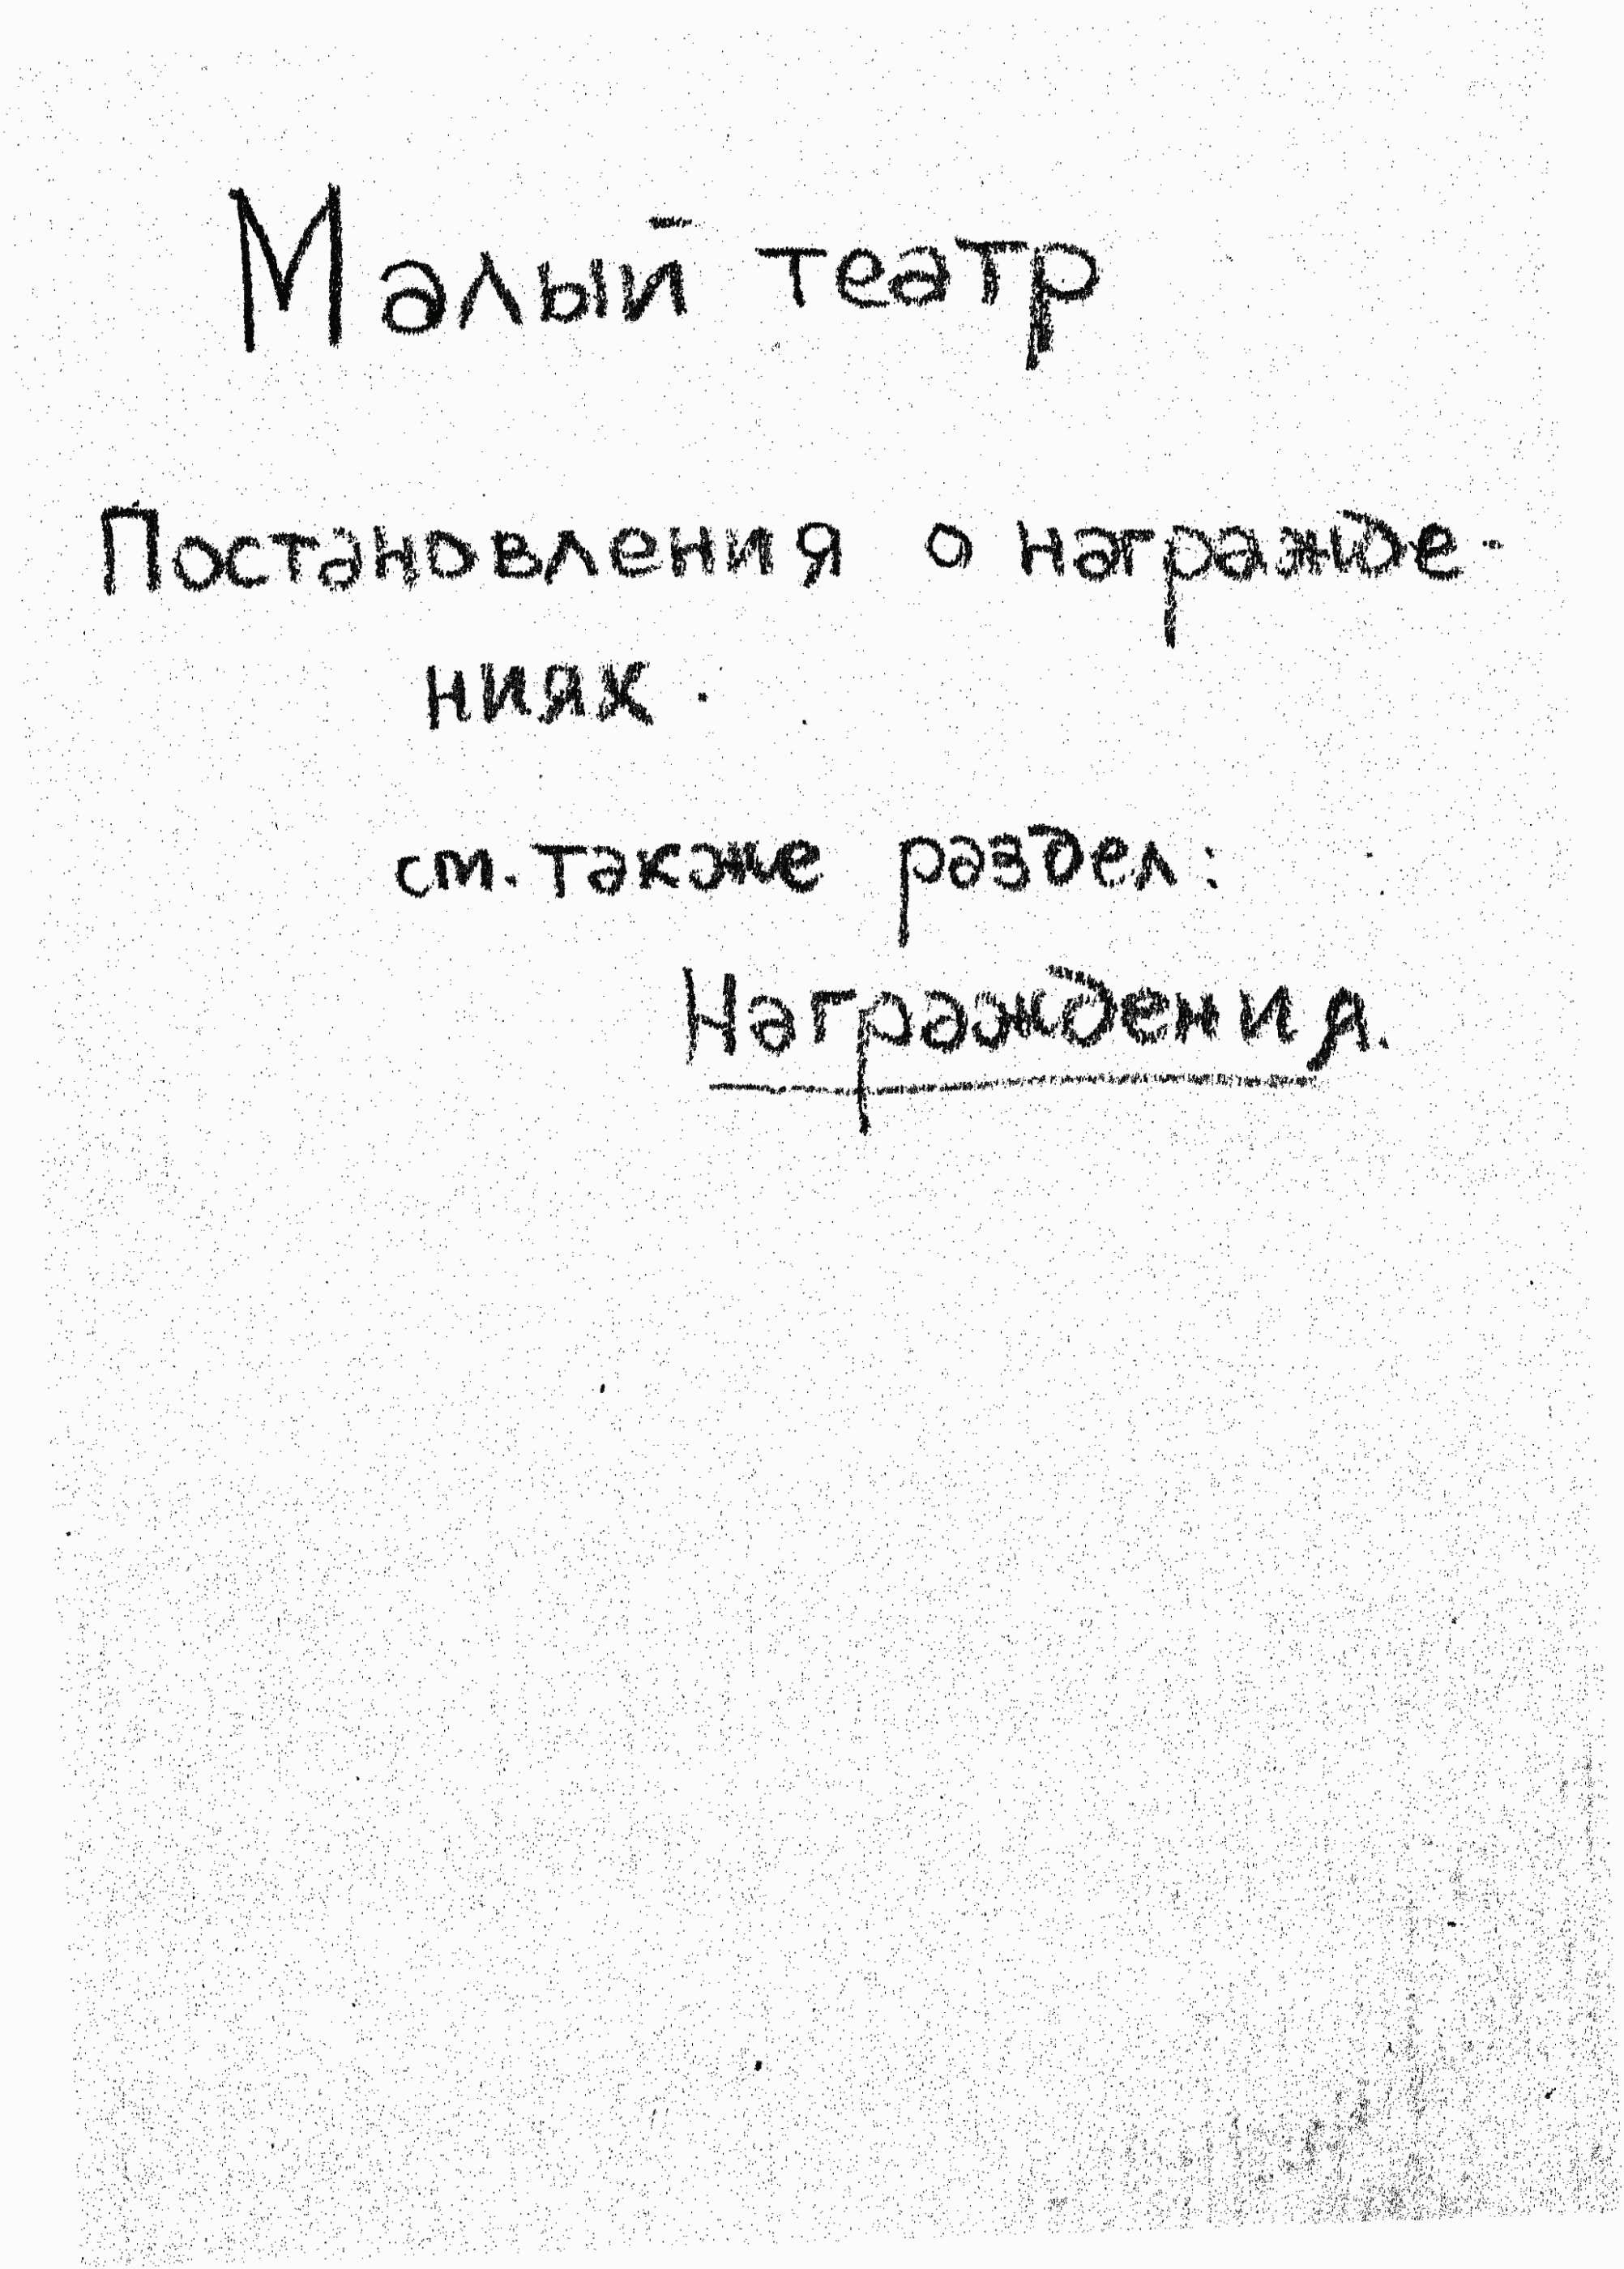 Малый театр
Постановления о награжде-
ниях.
см. также раздел:
Награждения.